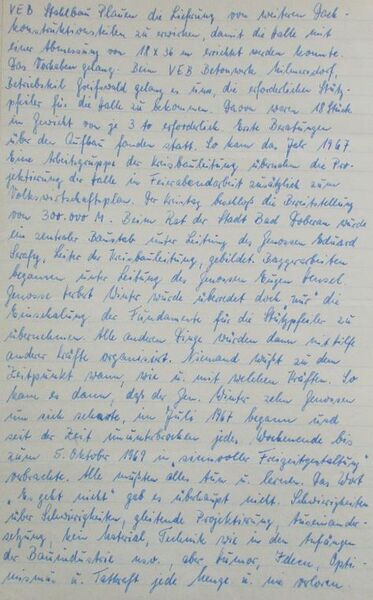 VEB Stahlbau Plauen die Lieferung von weiteren Dach-
konstruktionsteilen zu erreichen, damit die Halle mit
einer Abmessung von 18 x 36 m errichtet werden konnte.
Das Vorhaben gelang. Beim VEB Betonwerk Milmersdorf,
Betriebsteil Greifswald gelang es uns, die erforderlichen Stütz-
pfeiler für die Halle zu bekommen. Davon waren 18 Stück
im Gewicht von je 3 to erforderlich. Erste Beratungen
über den Aufbau fanden statt. So kam das Jahr 1967.
Eine Arbeitsgruppe der Kreisbauleitung übernahm die Pro-
jektierung der Halle in Feierabendarbeit zusätzlich zum
Volkswirtschaftsplan. Der Kreistag beschloß die Bereitstellung
von 300.000 M. Beim Rat der Stadt Bad Doberan wurde
ein zentraler Baustab unter Leitung des Genossen Eduard
Serafy, Leiter der Kreisbauleitung, gebildet. Baggerarbeiten
begannen unter Leitung des Genossen Eugen Hensel.
Genosse Herbst Winter wurde überredet doch "nur" die
Einschalung der Fundamente für die Stützpfeiler zu
übernehmen. Alle anderen Dinge würden dann mit Hilfe
anderer Kräfte organisiert. Niemand wußte zu dem
Zeitpunkt wann, wie u. mit welchen Kräften. So
kam es dann, daß der Gen. Winter zehn Genossen
um sich scharte, im Juli 1967 begann und
seit der Zeit ununterbrochen jedes Wochenende bis
zum 5. Oktober 1969 in "sinnvoller Freizeitgestaltung"
verbrachte. Alle mußten alles tun u. lernen. Das Wort
"Es geht nicht" gab es überhaupt nicht. Schwierigkeiten
über Schwierigkeiten, gleitende Projektierung, Auseinander-
setzung, kein Material, Technik wie in den Anfängen
der Bauindustrie usw., aber Humor, Ideen, Opti-
mismus u. Tatkraft jede Menge u. nie verloren.